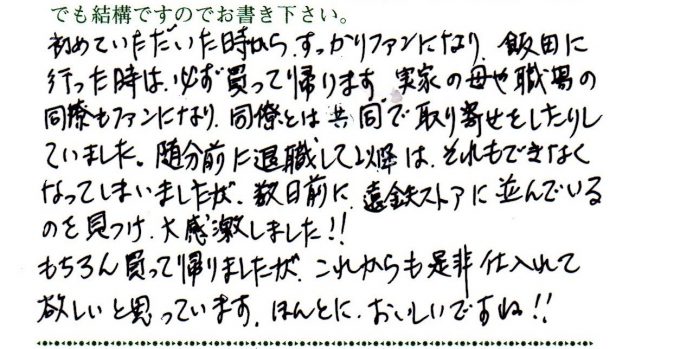 でも結構ですのでお書き下さい。
初めていただいた時から、すっかりファンになり、飯田に
行った時は、必ず買って帰ります。実家の母や職場の
同僚もファンになり、同僚とは共同で取り寄せをしたりし
ていました。随分前に退職して以降は、それもできなく
なってしまいましたが、数日前に、遠鉄ストアに並んでいる
のを見つけ、大感激しました!!
もちろん買って帰りましたが、これからも是非仕入れて
欲しいと思っています。ほんとに、おいしいですね!!